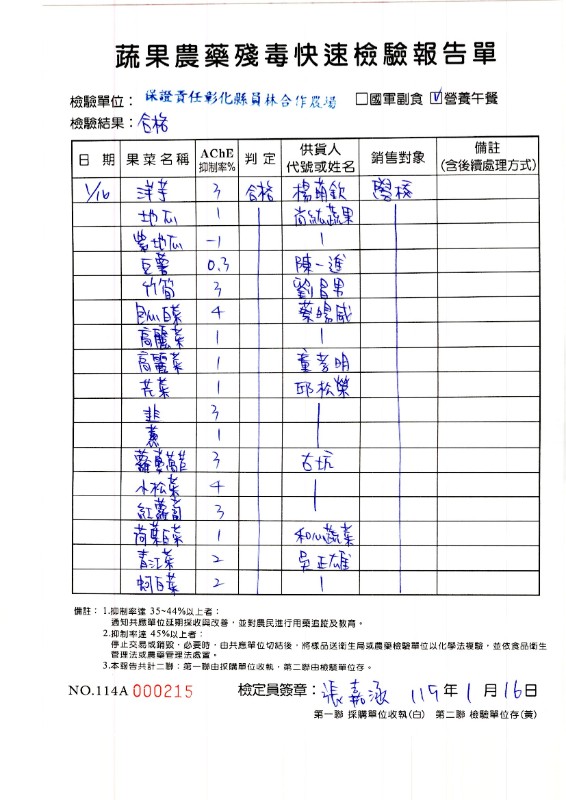 蔬果農藥殘毒快速檢驗報告單
檢驗單位：保證責任彰化縣員林合作農場 □國軍副食 ☑營養午餐
檢驗結果：合格
日期 果菜名稱 AChE抑制率% 判定 供貨人代號或姓名 銷售對象 備註(含後續處理方式)
1/16 洋芋 3 合格 楊萌欽 學校
地瓜 1 尚紘蔬果
紫地瓜 -1
豆薯 0.3 陳一進
竹筍 3 劉昌男
包心白菜 4 蔡暘威
高麗菜 1
高麗菜 1 童孝明
花菜 1 邱松榮
韭 3
蔥 1
蘿蔓萵苣 3 古坑
小松菜 4
紅蘿蔔 3
荷葉白菜 1 和心蔬菜
青江菜 2 吳正雄
蚵白菜 2
備註：1.抑制率達 35~44%以上者：
通知共應單位延期採收與改善，並對農民進行用藥追蹤及教育。
2.抑制率達 45%以上者：
停止交易或銷毀，必要時，由共應單位切結後，將樣品送衛生局或農藥檢驗單位以化學法複驗，並依食品衛生
管理法或農藥管理法處置。
3.本報告共計二聯：第一聯由採購單位收執，第二聯由檢驗單位存。
NO.114A 000215 檢定員簽章：張嘉涵 115年1月16日
第一聯 採購單位收執(白) 第二聯 檢驗單位存(黃)